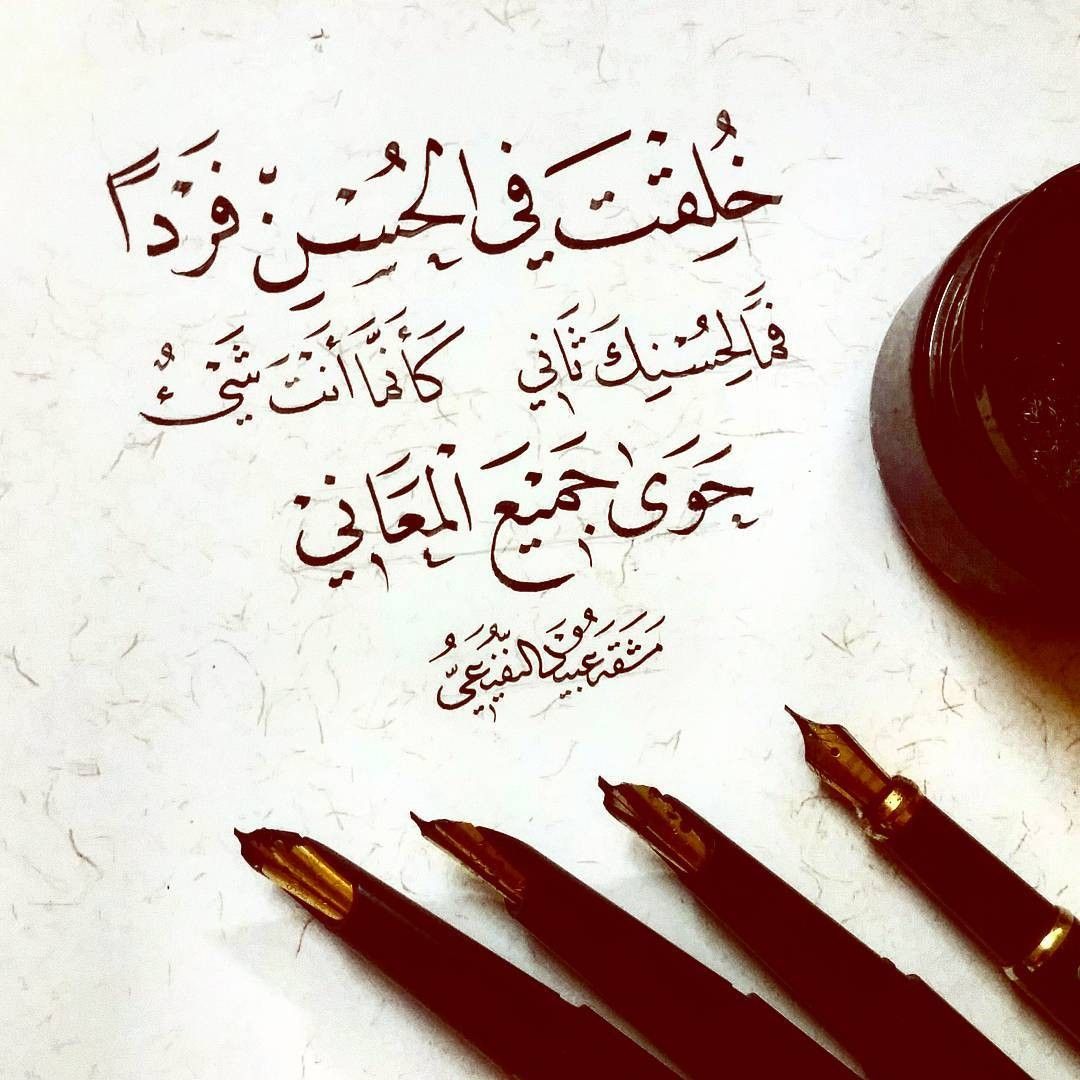 خُلِقْتَ في الحُسْنِ فَرْداً
فَمَا لِحُسْنِكَ ثَاني كَأَنَّمَا أَنْتَ شَيْءٌ
حَوَى جَمِيْعَ الْمَعَانِيْ
مَشَقَهُ عَبِيدُ النُّفَيْعِيُّ